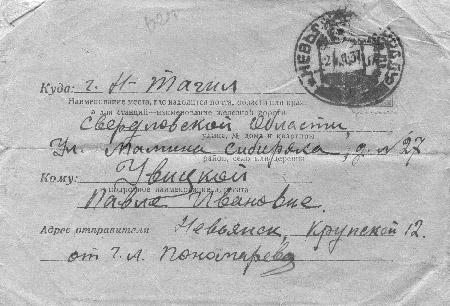 Куда: г. Н-Тагил
Наименование места, где находится почта, области или края
а для станций—наименование железной дороги
Свердловской области,
улица, № дома и квартиры
Ул. Мамина Сибиряка, д. № 27
район, село или деревня
Кому: Увицкой
подробное наименование адресата
Павле Ивановне.
Адрес отправителя Невьянск, Крупской 12.
от Г. Л. Пономарева